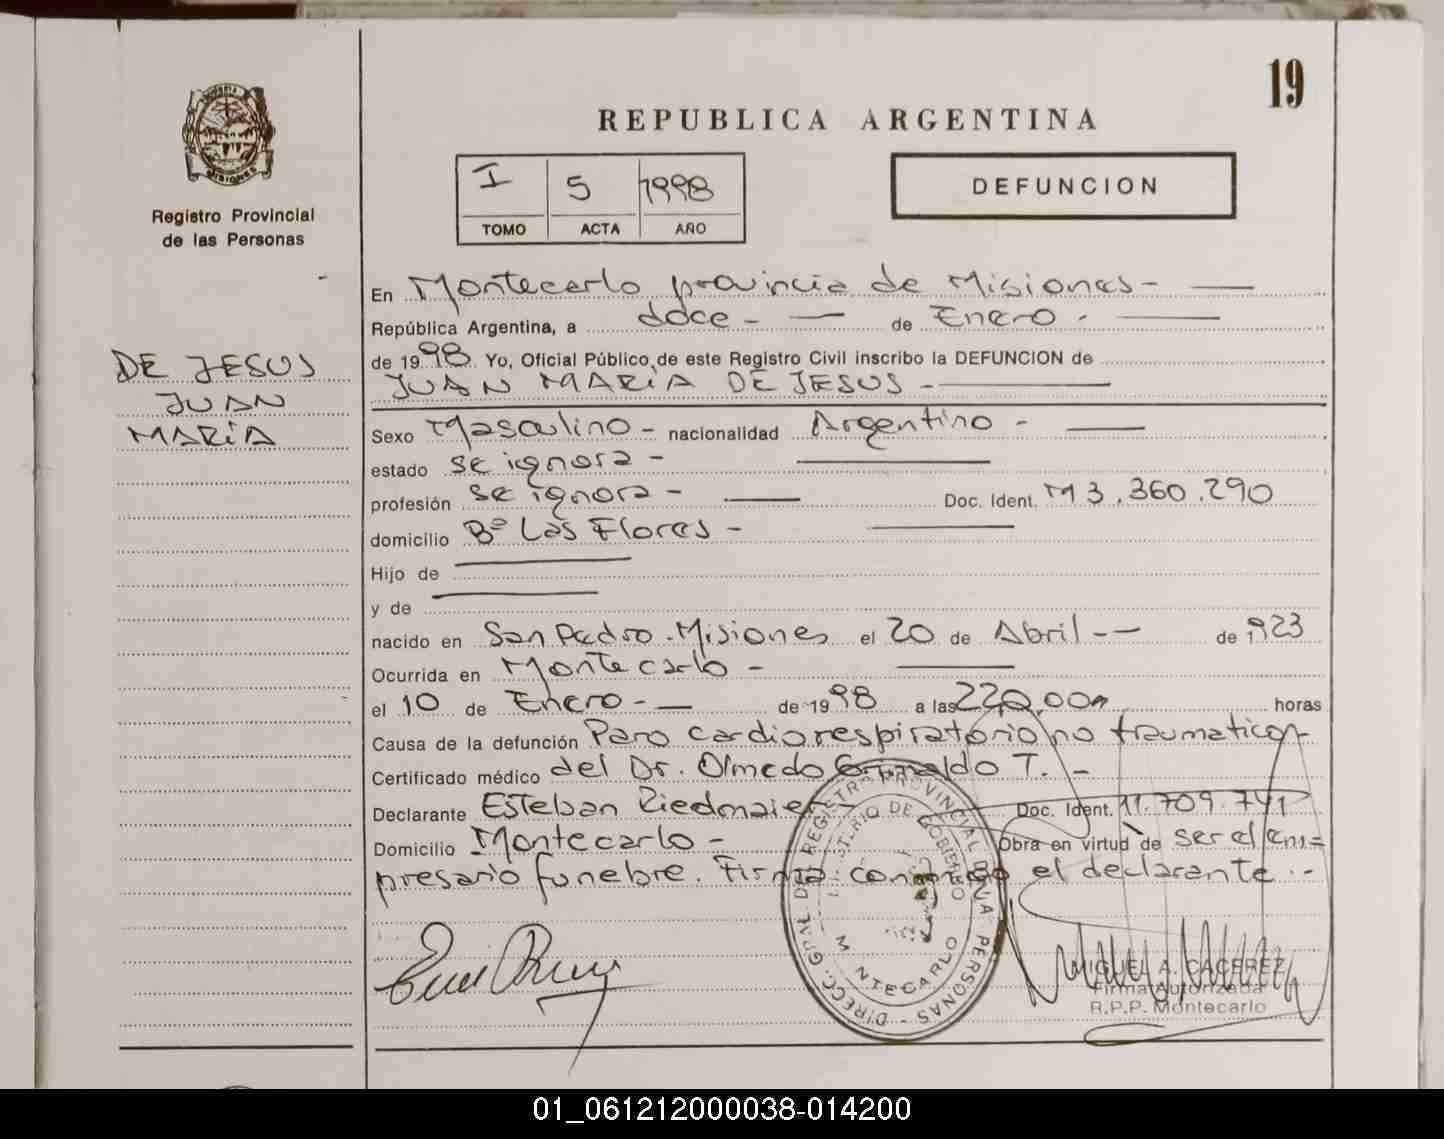 19
REPUBLICA ARGENTINA
I 5 1998
TOMO ACTA AÑO
DEFUNCION
MISIONES
Registro Provincial
de las Personas
DE JESUS
JUAN
MARÍA
En Montecarlo provincia de Misiones-
República Argentina, a doce- de Enero-
de 1998. Yo, Oficial Público de este Registro Civil inscribo la DEFUNCION de
JUAN MARÍA DE JESUS-
Sexo Masculino- nacionalidad Argentino-
estado se ignora-
profesión se ignora- Doc. Ident. M 3.360.290
domicilio Bº Las Flores-
Hijo de
y de
nacido en San Pedro-Misiones el 20 de Abril-- de 1923
Ocurrida en Montecarlo-
el 10 de Enero-- de 1998 a las horas
Causa de la defunción Paro cardiorespiratorio no traumatico-
Certificado médico del Dr. Olmedo T.-
Declarante Esteban Riedmaier- Doc. Ident. 11.709.741
Domicilio Montecarlo- Obra en virtud de ser el em=
presario funebre. Firma conmigo el declarante.-
DIRECC. GRAL DEL REGISTRO PROVINCIAL DE LAS PERSONAS -
MINISTERIO DE GOBIERNO
MONTECARLO
MIGUEL A. CACEREZ
Firma Autorizada
R.P.P. Montecarlo
01_061212000038-014200